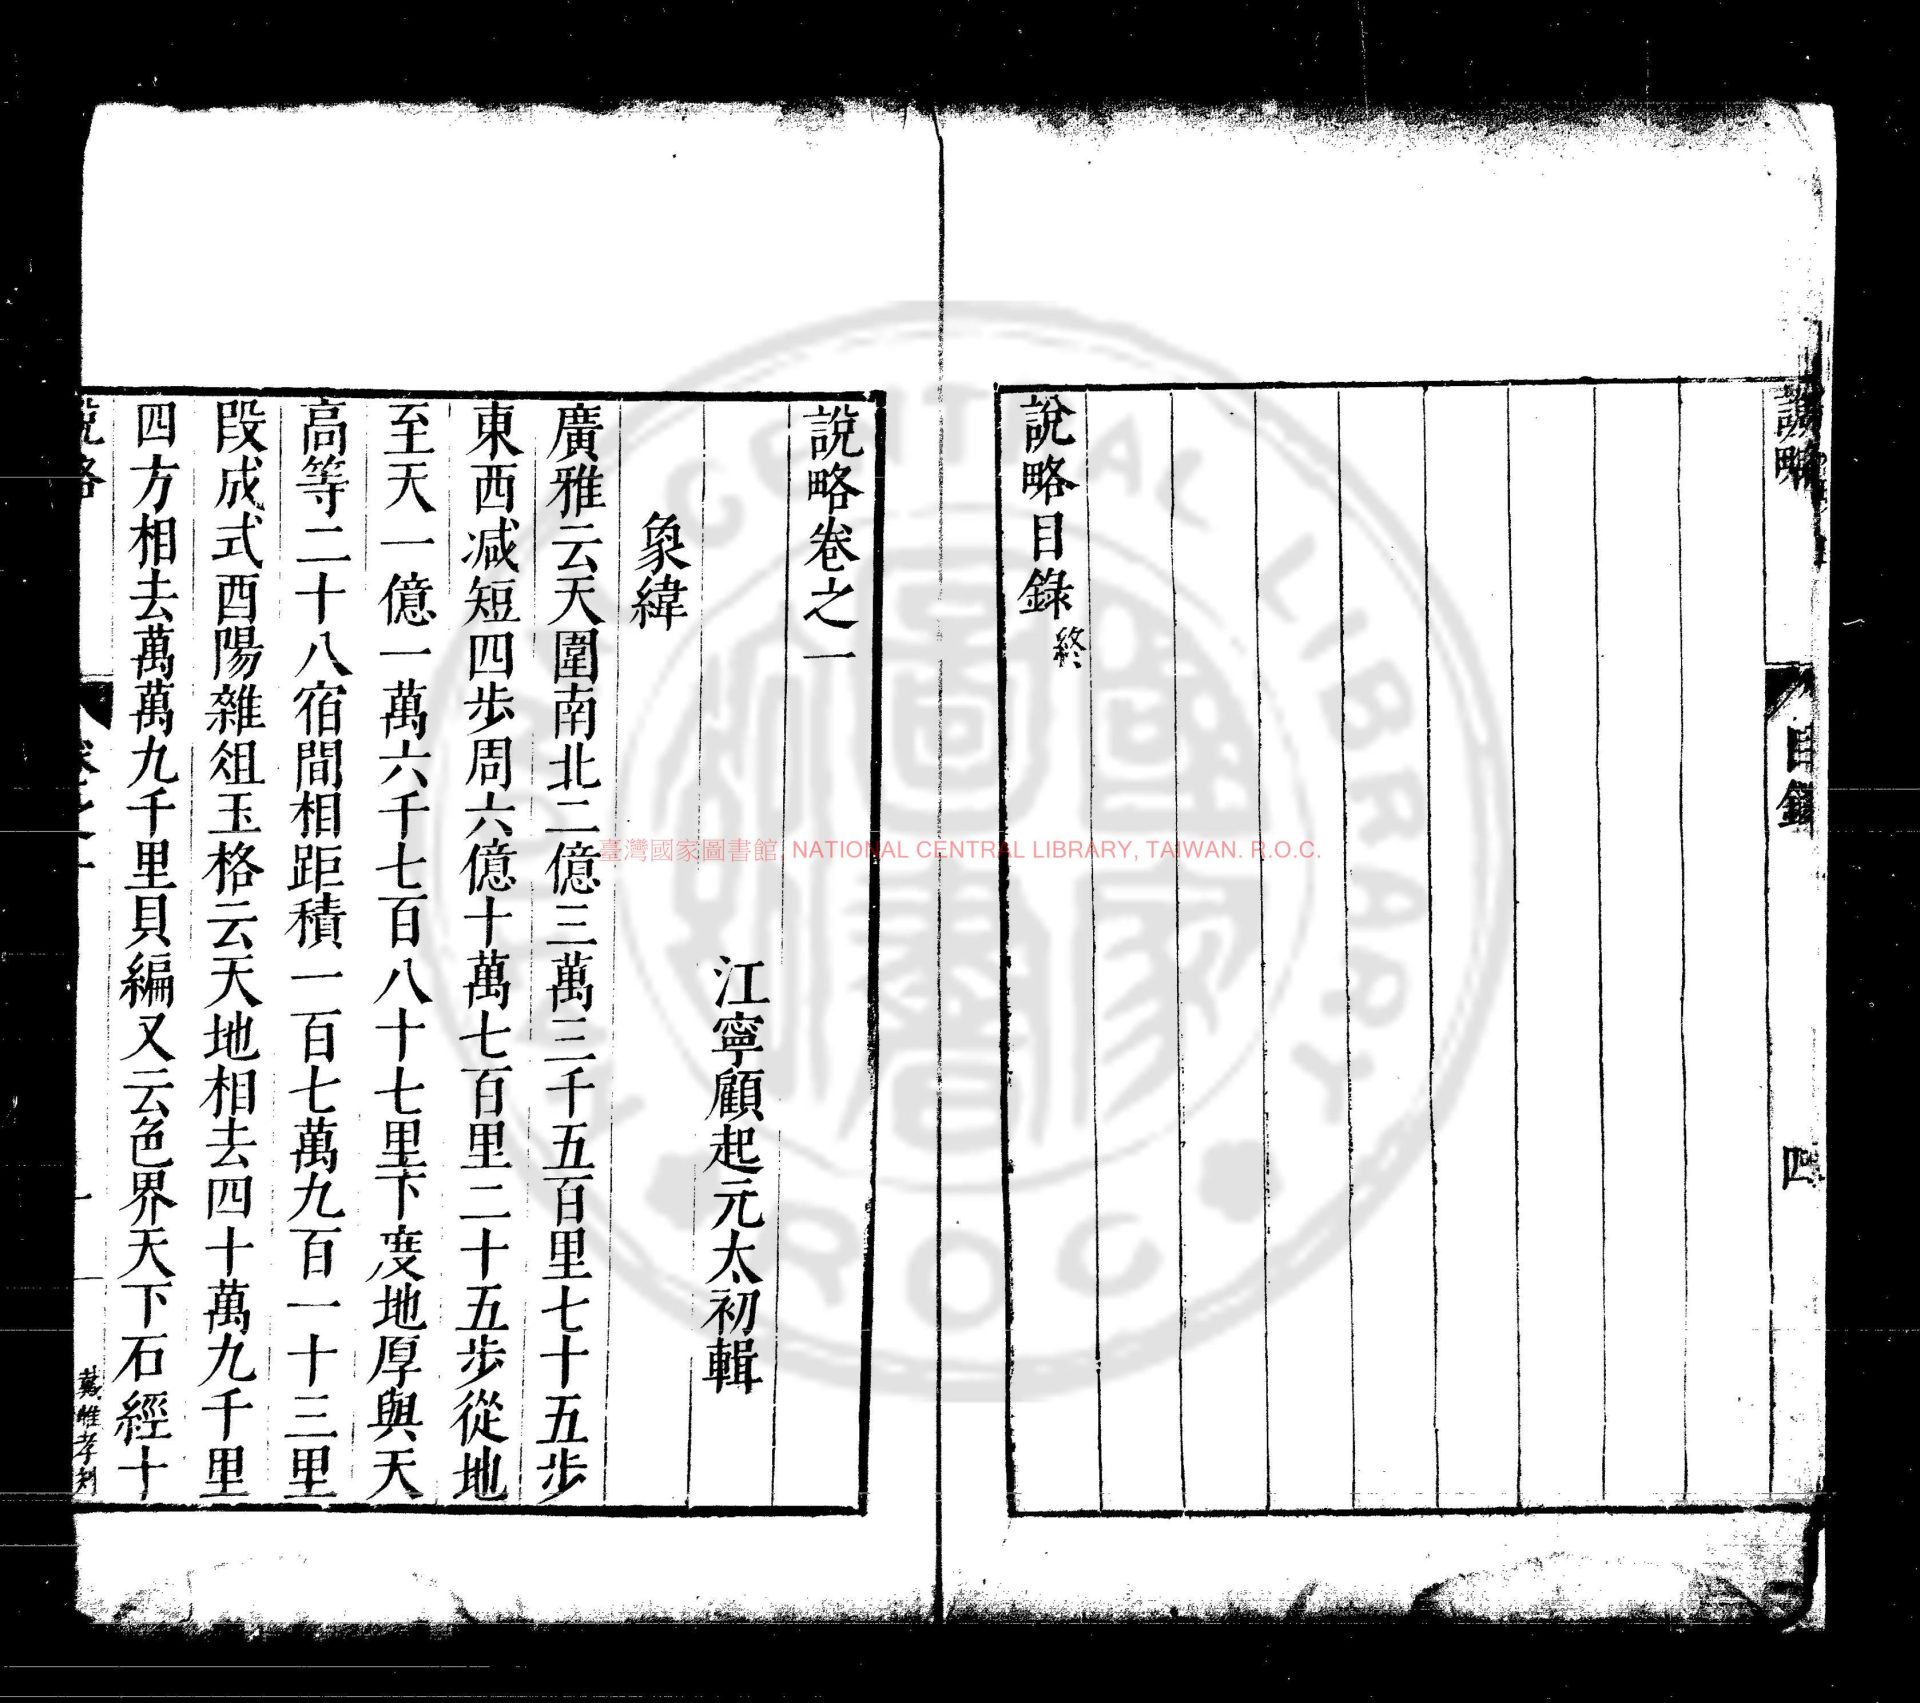 說略
目錄
四
說略目錄終
說略卷之一
江寧顧起元太初輯
象緯
廣雅云天圍南北二億三萬三千五百里七十五步
東西減短四步周六億十萬七百里二十五步從地
至天一億一萬六千七百八十七里下度地厚與天
高等二十八宿間相距積一百七萬九百一十三里
段成式酉陽雜俎玉格云天地相去四十萬九千里
四方相去萬萬九千里貝編又云色界天下石經十
說略
卷之一
一
戴惟孝刻
臺灣國家圖書館, NATIONAL CENTRAL LIBRARY, TAIWAN. R.O.C.